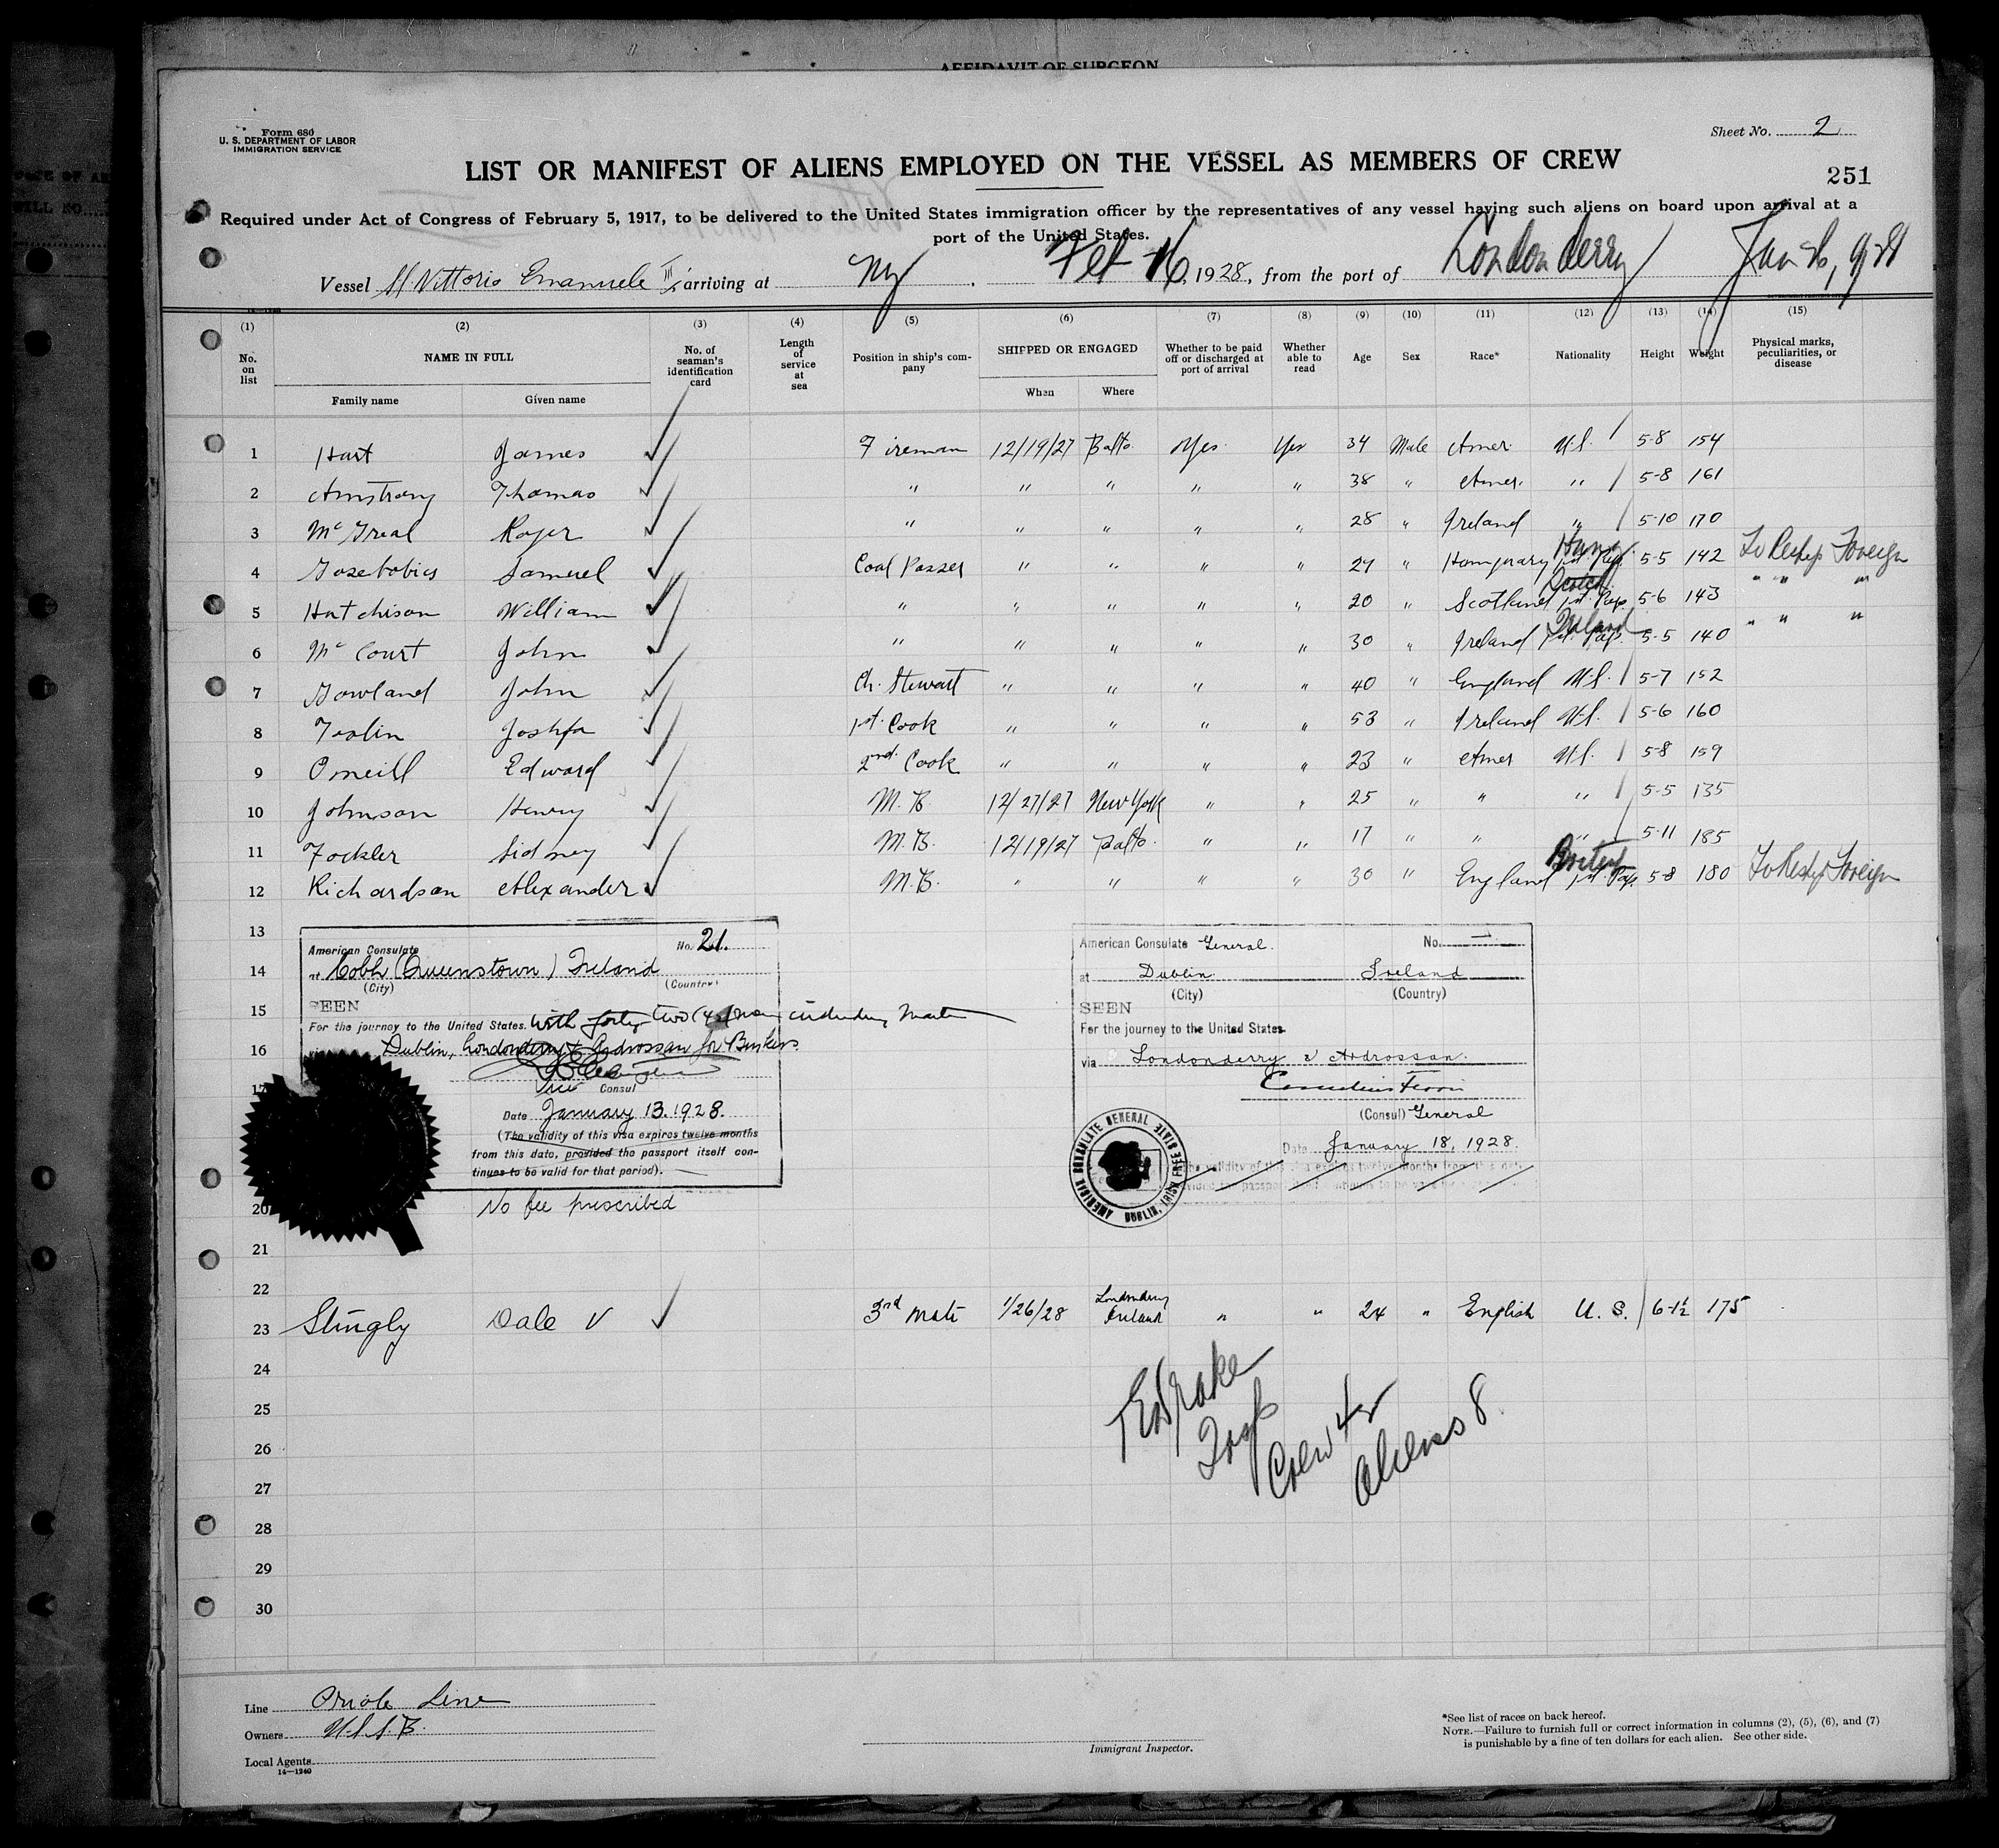 AFFIDAVIT OF SURGEON
Form 680
U. S. DEPARTMENT OF LABOR
IMMIGRATION SERVICE
Sheet No. 2
LIST OR MANIFEST OF ALIENS EMPLOYED ON THE VESSEL AS MEMBERS OF CREW
251
Required under Act of Congress of February 5, 1917, to be delivered to the United States immigration officer by the representatives of any vessel having such aliens on board upon arrival at a
port of the United States.
Vessel Vittorio Emanuele III, arriving at Ny. Feb 16, 1928, from the port of Londonderry
(1) (2) (3) (4) (5) (6) (7) (8) (9) (10) (11) (12) (13) (14) (15)
No. on list NAME IN FULL No. of seaman's identification card Length of service at sea Position in ship's company SHIPPED OR ENGAGED Whether to be paid off or discharged at port of arrival Whether able to read Age Sex Race* Nationality Height Weight Physical marks, peculiarities, or disease
Family name Given name When Where
1 Hart James Fireman 12/19/27 Balto. Yes Yes 34 Male Amer. U.S. 5-8 154
2 Armstrong Thomas " " " " " 38 " Amer. " 5-8 161
3 McGreal Roger " " " " " 28 " Ireland " 5-10 170
4 Samuel Coal Passer " " " " 29 " Hungrary Hung. 1st Pap. 5-5 142 To Reship Foreign
5 Hutchison William " " " " " 20 " Scotland Scotch 1st Pap. 5-6 143 " " "
6 McCourt John " " " " " 30 " Ireland Ireland 1st Pap. 5-5 140 " " "
7 Gowland John Ch. Stewart " " " " 40 " England U.S. 5-7 152
8 1st Cook " " " " 53 " Ireland U.S. 5-6 160
9 Oneill Edward 2nd Cook " " " " 23 " Amer U.S. 5-8 159
10 Johnson Henry M.B. 12/27/27 New York " " 25 " " " 5-5 135
11 Fockler Sidney M.B. 12/19/27 Balto. " " 17 " " " 5-11 185
12 Richardson Alexander M.B. " " " " 30 " England British 1st Pap. 5-8 180 To Reship Foreign
13
14
15
16
17
American Consulate No. 21.
at Cobh (Queenstown) Ireland
(City) (Country)
SEEN
For the journey to the United States. with forty two (42) men including Master
Dublin, Londonderry & Ardrossan for Bunkers.
Vice Consul
Date January 13. 1928.
(The validity of this visa expires twelve months
from this date, provided the passport itself con-
tinues to be valid for that period).
No fee prescribed
American Consulate General. No. —
at Dublin Ireland
(City) (Country)
SEEN
For the journey to the United States
via Londonderry & Ardrossan.
(Consul) General
Date January 18, 1928.
AMERICAN CONSULATE GENERAL DUBLIN, IRISH FREE STATE
20
21
22
23 Stingly Dale V 3rd Mate 1/26/28 Londonderry Ireland " " 24 " English U. S. 6-1½ 175
24
25
26
27
28
29
30
Crew 42
Aliens 8
Line Oriole Line
Owners U.S.S.B.
Local Agents
14—1240
Immigrant Inspector.
*See list of races on back hereof.
NOTE.—Failure to furnish full or correct information in columns (2), (5), (6), and (7)
is punishable by a fine of ten dollars for each alien. See other side.